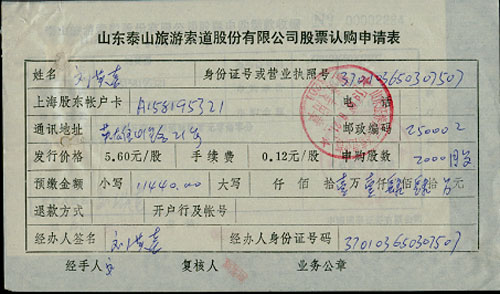 山东泰山旅游索道股份有限公司股票认购申请表
姓名 刘 身份证号或营业执照号 370103650307507
上海股东帐户卡 A158195321 电话
通讯地址 英雄山路21号 邮政编码 250002
发行价格 5.60元/股 手续费 0.12元/股 申购股数 2000股
预缴金额 小写 11440.00 大写 仟 佰 拾壹万壹仟肆佰肆拾 元
退款方式 开户行及帐号
经办人签名 刘 经办人身份证号码 370103650307507
经手人 复核人 业务公章